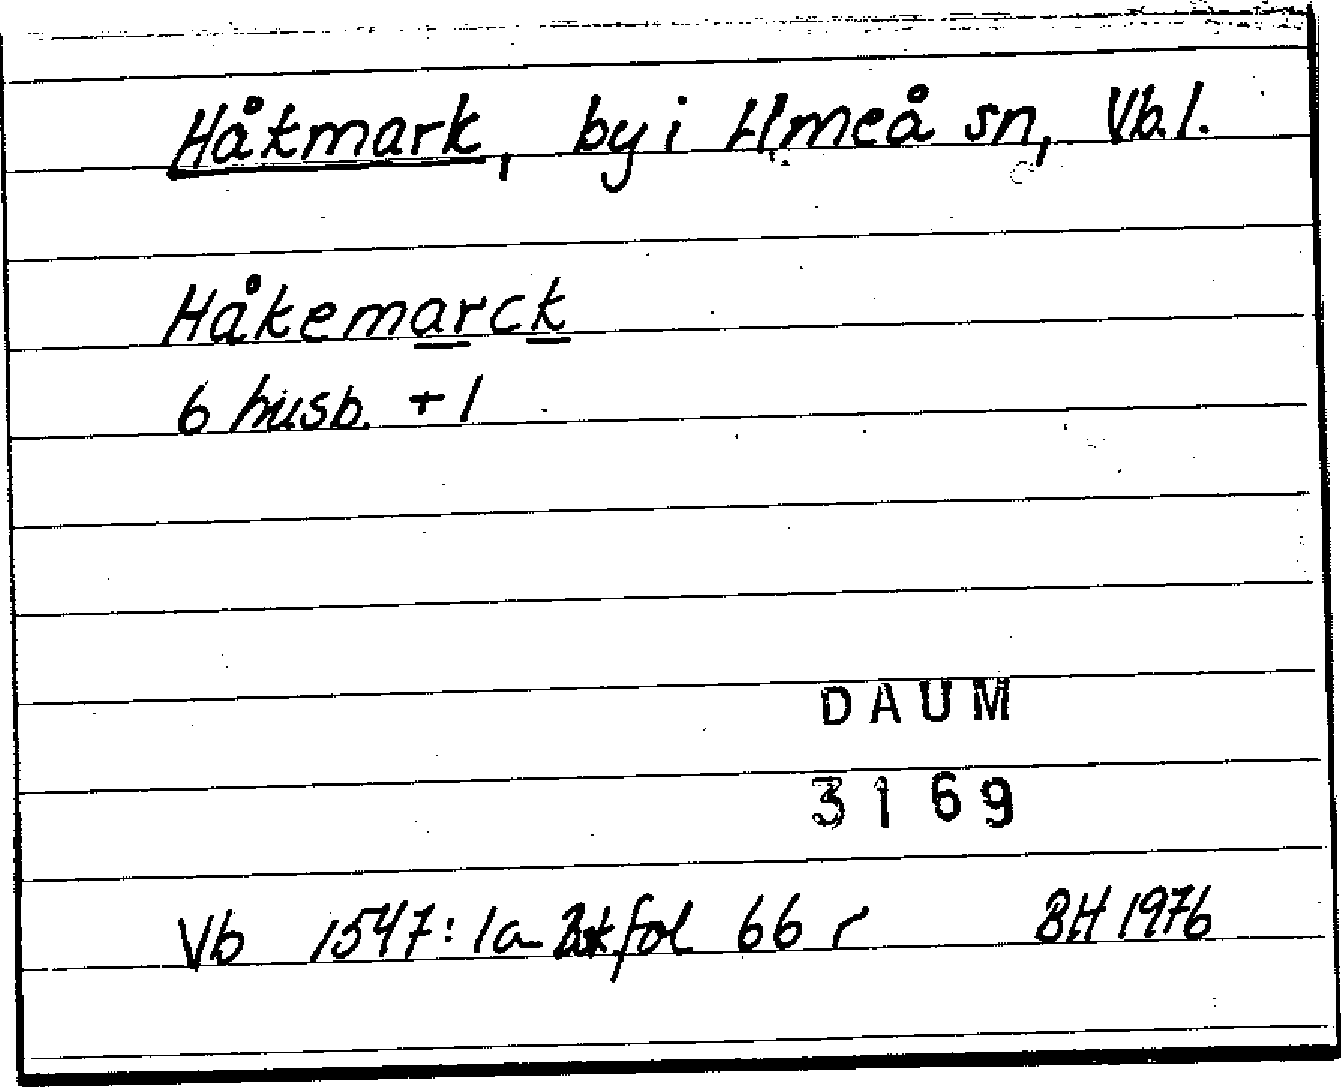 Håtmark, by i Umeå sn, Vb.l.
Håkemarck
6 husb. + 1
DAUM
3169
Vb 1547: 1a fol 66 r BH 1976